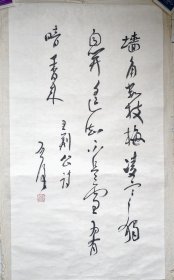 墙角数枝梅凌寒独
自开遥知不是雪为有
暗香来
王荆公诗